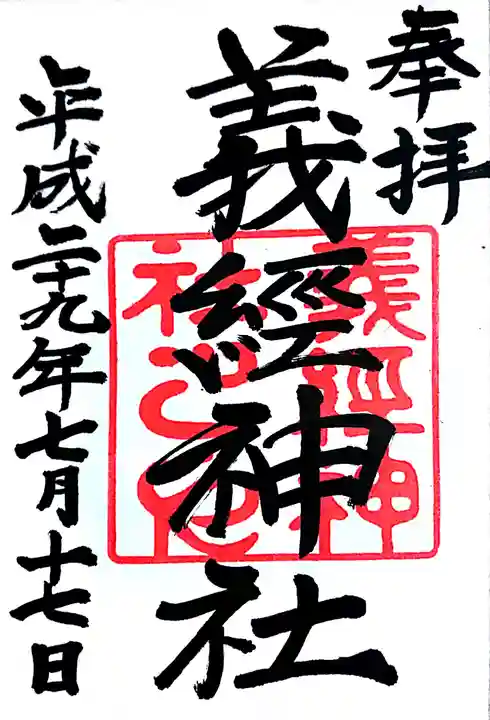 奉拝
義經神社
義経神社之印
平成二十九年七月十七日